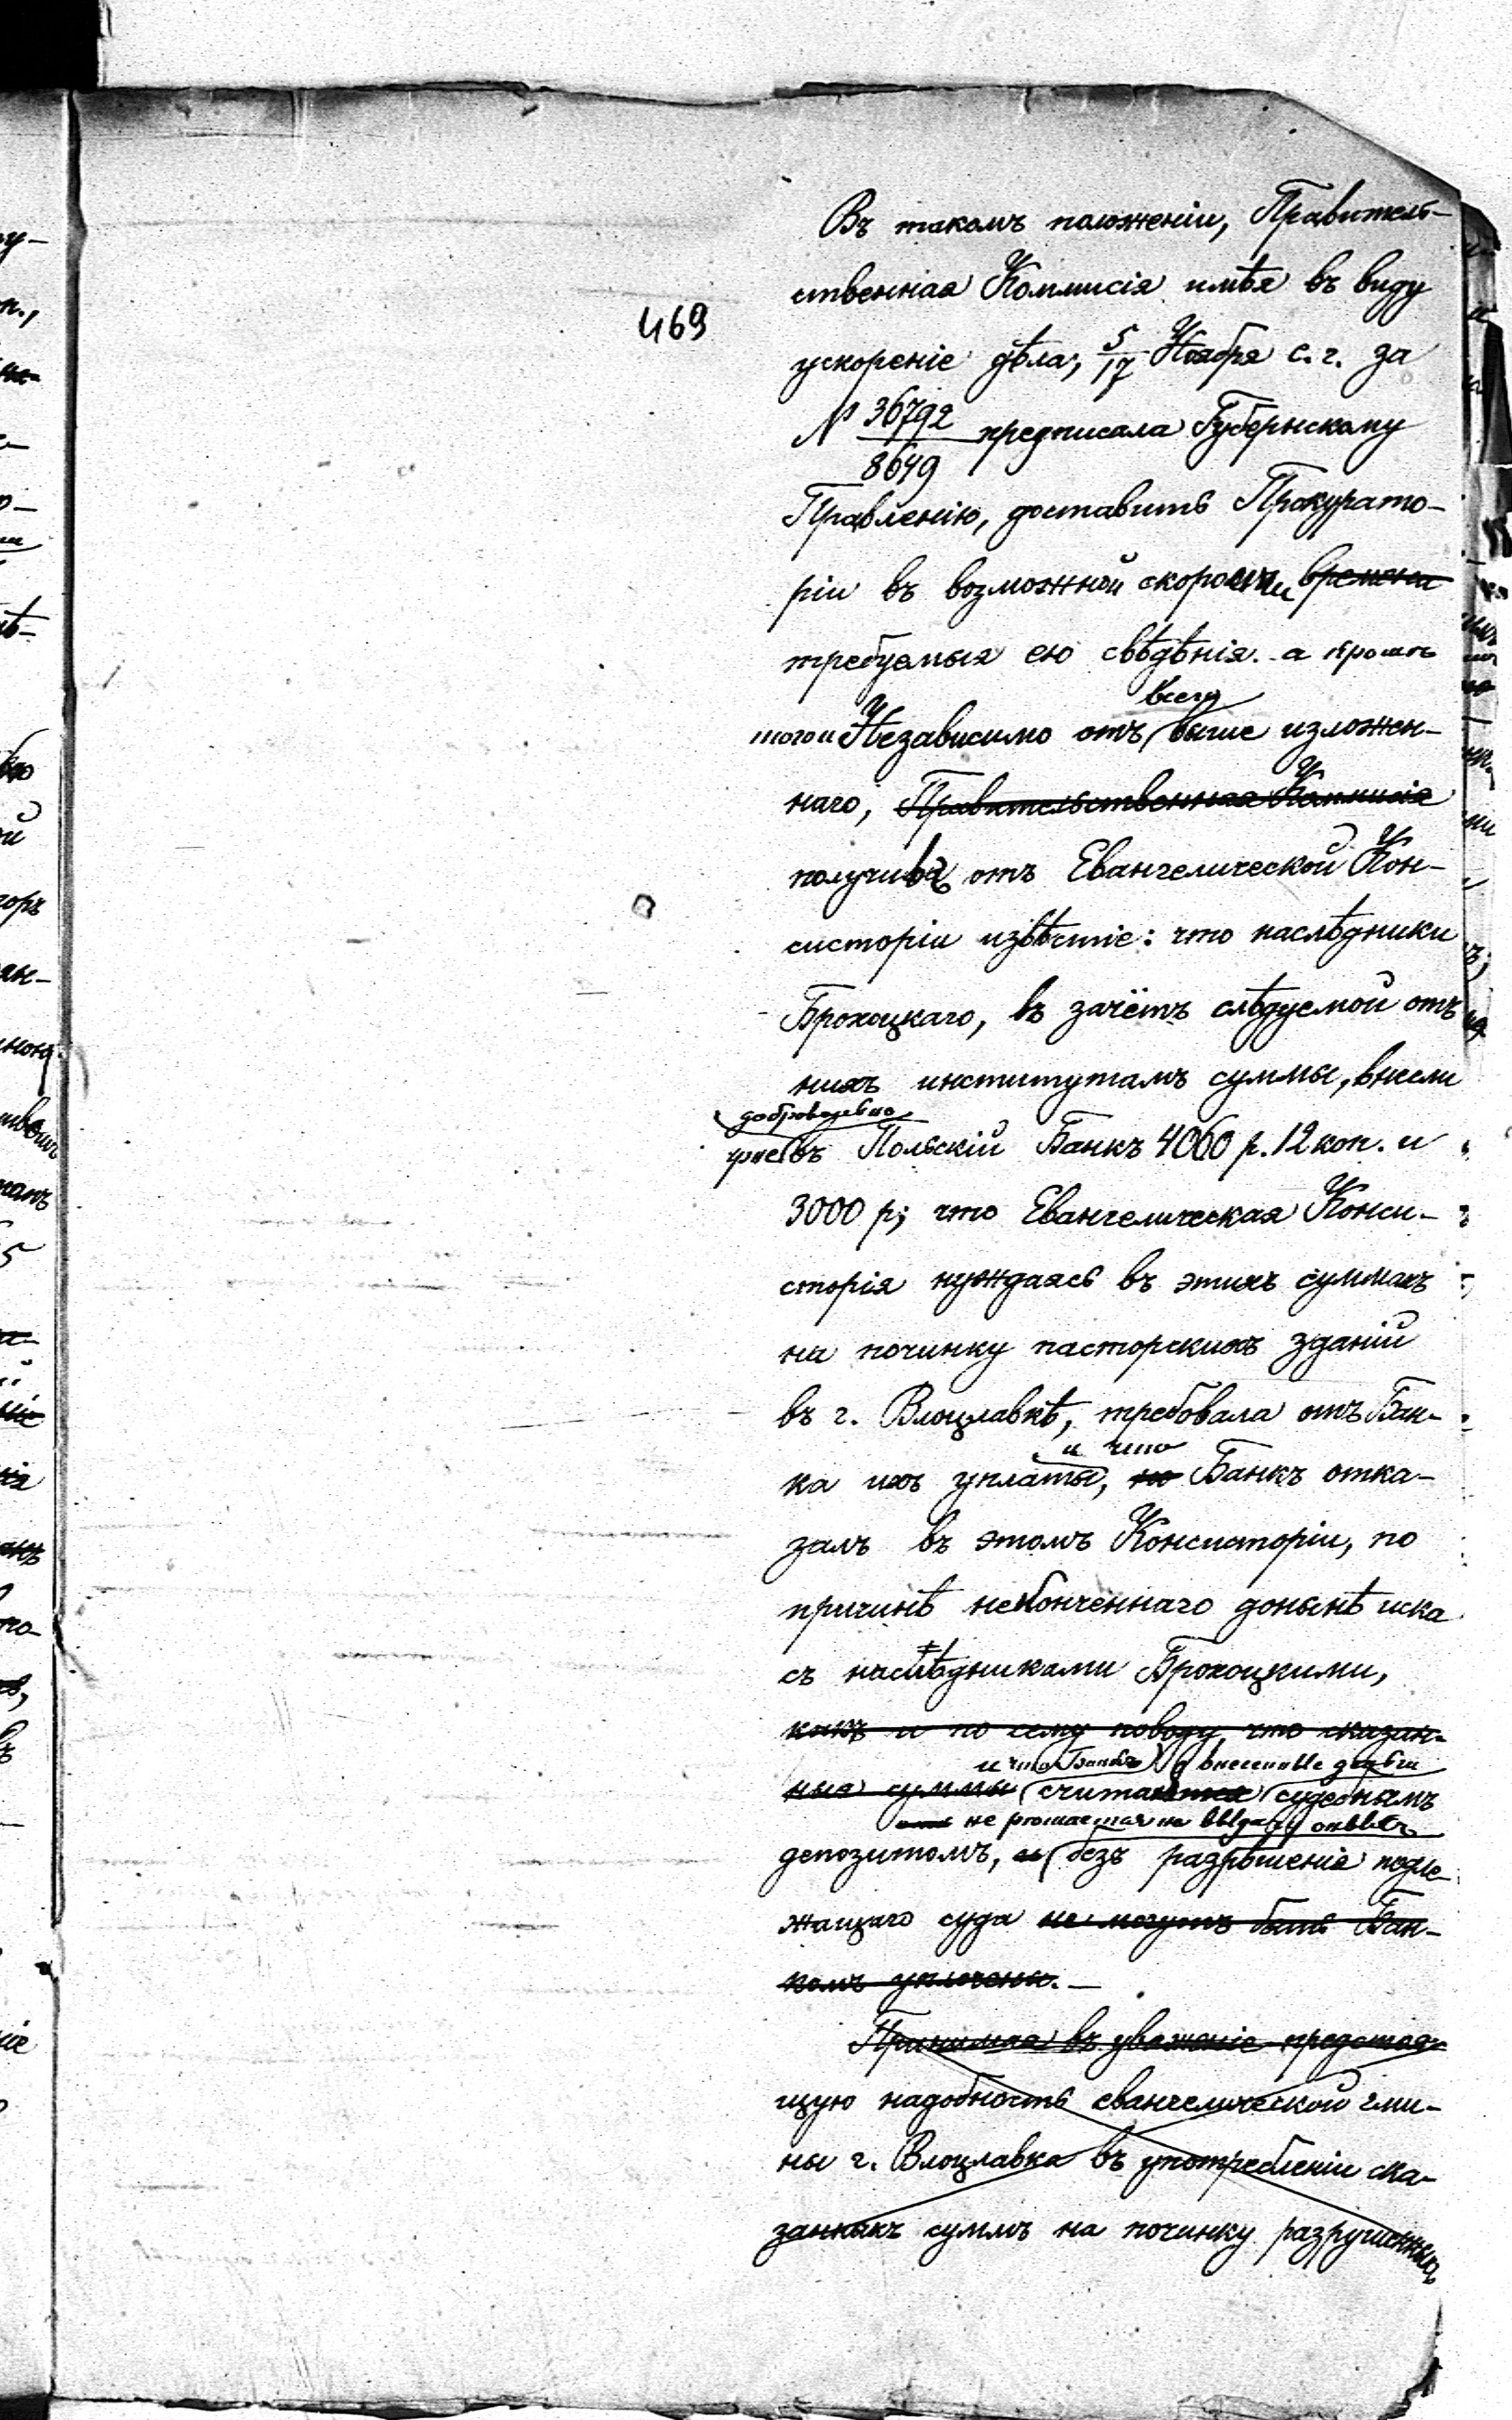 469
Въ такомъ положеніи, Правитель-
ственная Коммисія имѣя въ виду
ускореніе дѣла, 5/17 Ноября с. г. за
№ 36792/8649 предписала Губернскому
Правленію, доставить Прокурато-
ріи въ возможной скорости времени
требуемыя ею свѣдѣнія. а кромѣ
всего
того и Независимо отъ выше изложен-
наго, Правительственная Коммисія
получивъ отъ Евангелической Кон-
систоріи извѣстіе: что наслѣдники
Брохоцкаго, въ зачётъ слѣдуемой отъ
нихъ институтамъ суммы, внесли
добровольно
уже въ Польскій Банкъ 4060 р. 12 коп. и
3000 р; что Евангелическая Конси-
сторія нуждаясь въ этихъ суммахъ
на починку пасторскихъ зданій
въ г. Влоцлавкѣ, требовала отъ Бан-
и что
ка ихъ уплаты, но Банкъ отка-
залъ въ этомъ Консисторіи, по
причинѣ неконченнаго донынѣ иска
съ наслѣдниками Брохоцкими,
какъ и по сему поводу, что сказан-
и что Банкъ внесенные деньги
ныя суммы считаются судебнымъ
не рѣшается на выдачу оныхъ
депозитомъ, и безъ разрѣшенія подле-
жащаго суда не могутъ быть Бан-
комъ уплочены.—
Принимая въ уваженіе предстоя-
щую надобность евангелической гми-
ны г. Влоцлавка въ употребленіи ска-
занныхъ суммъ на починку разрушенныхъ